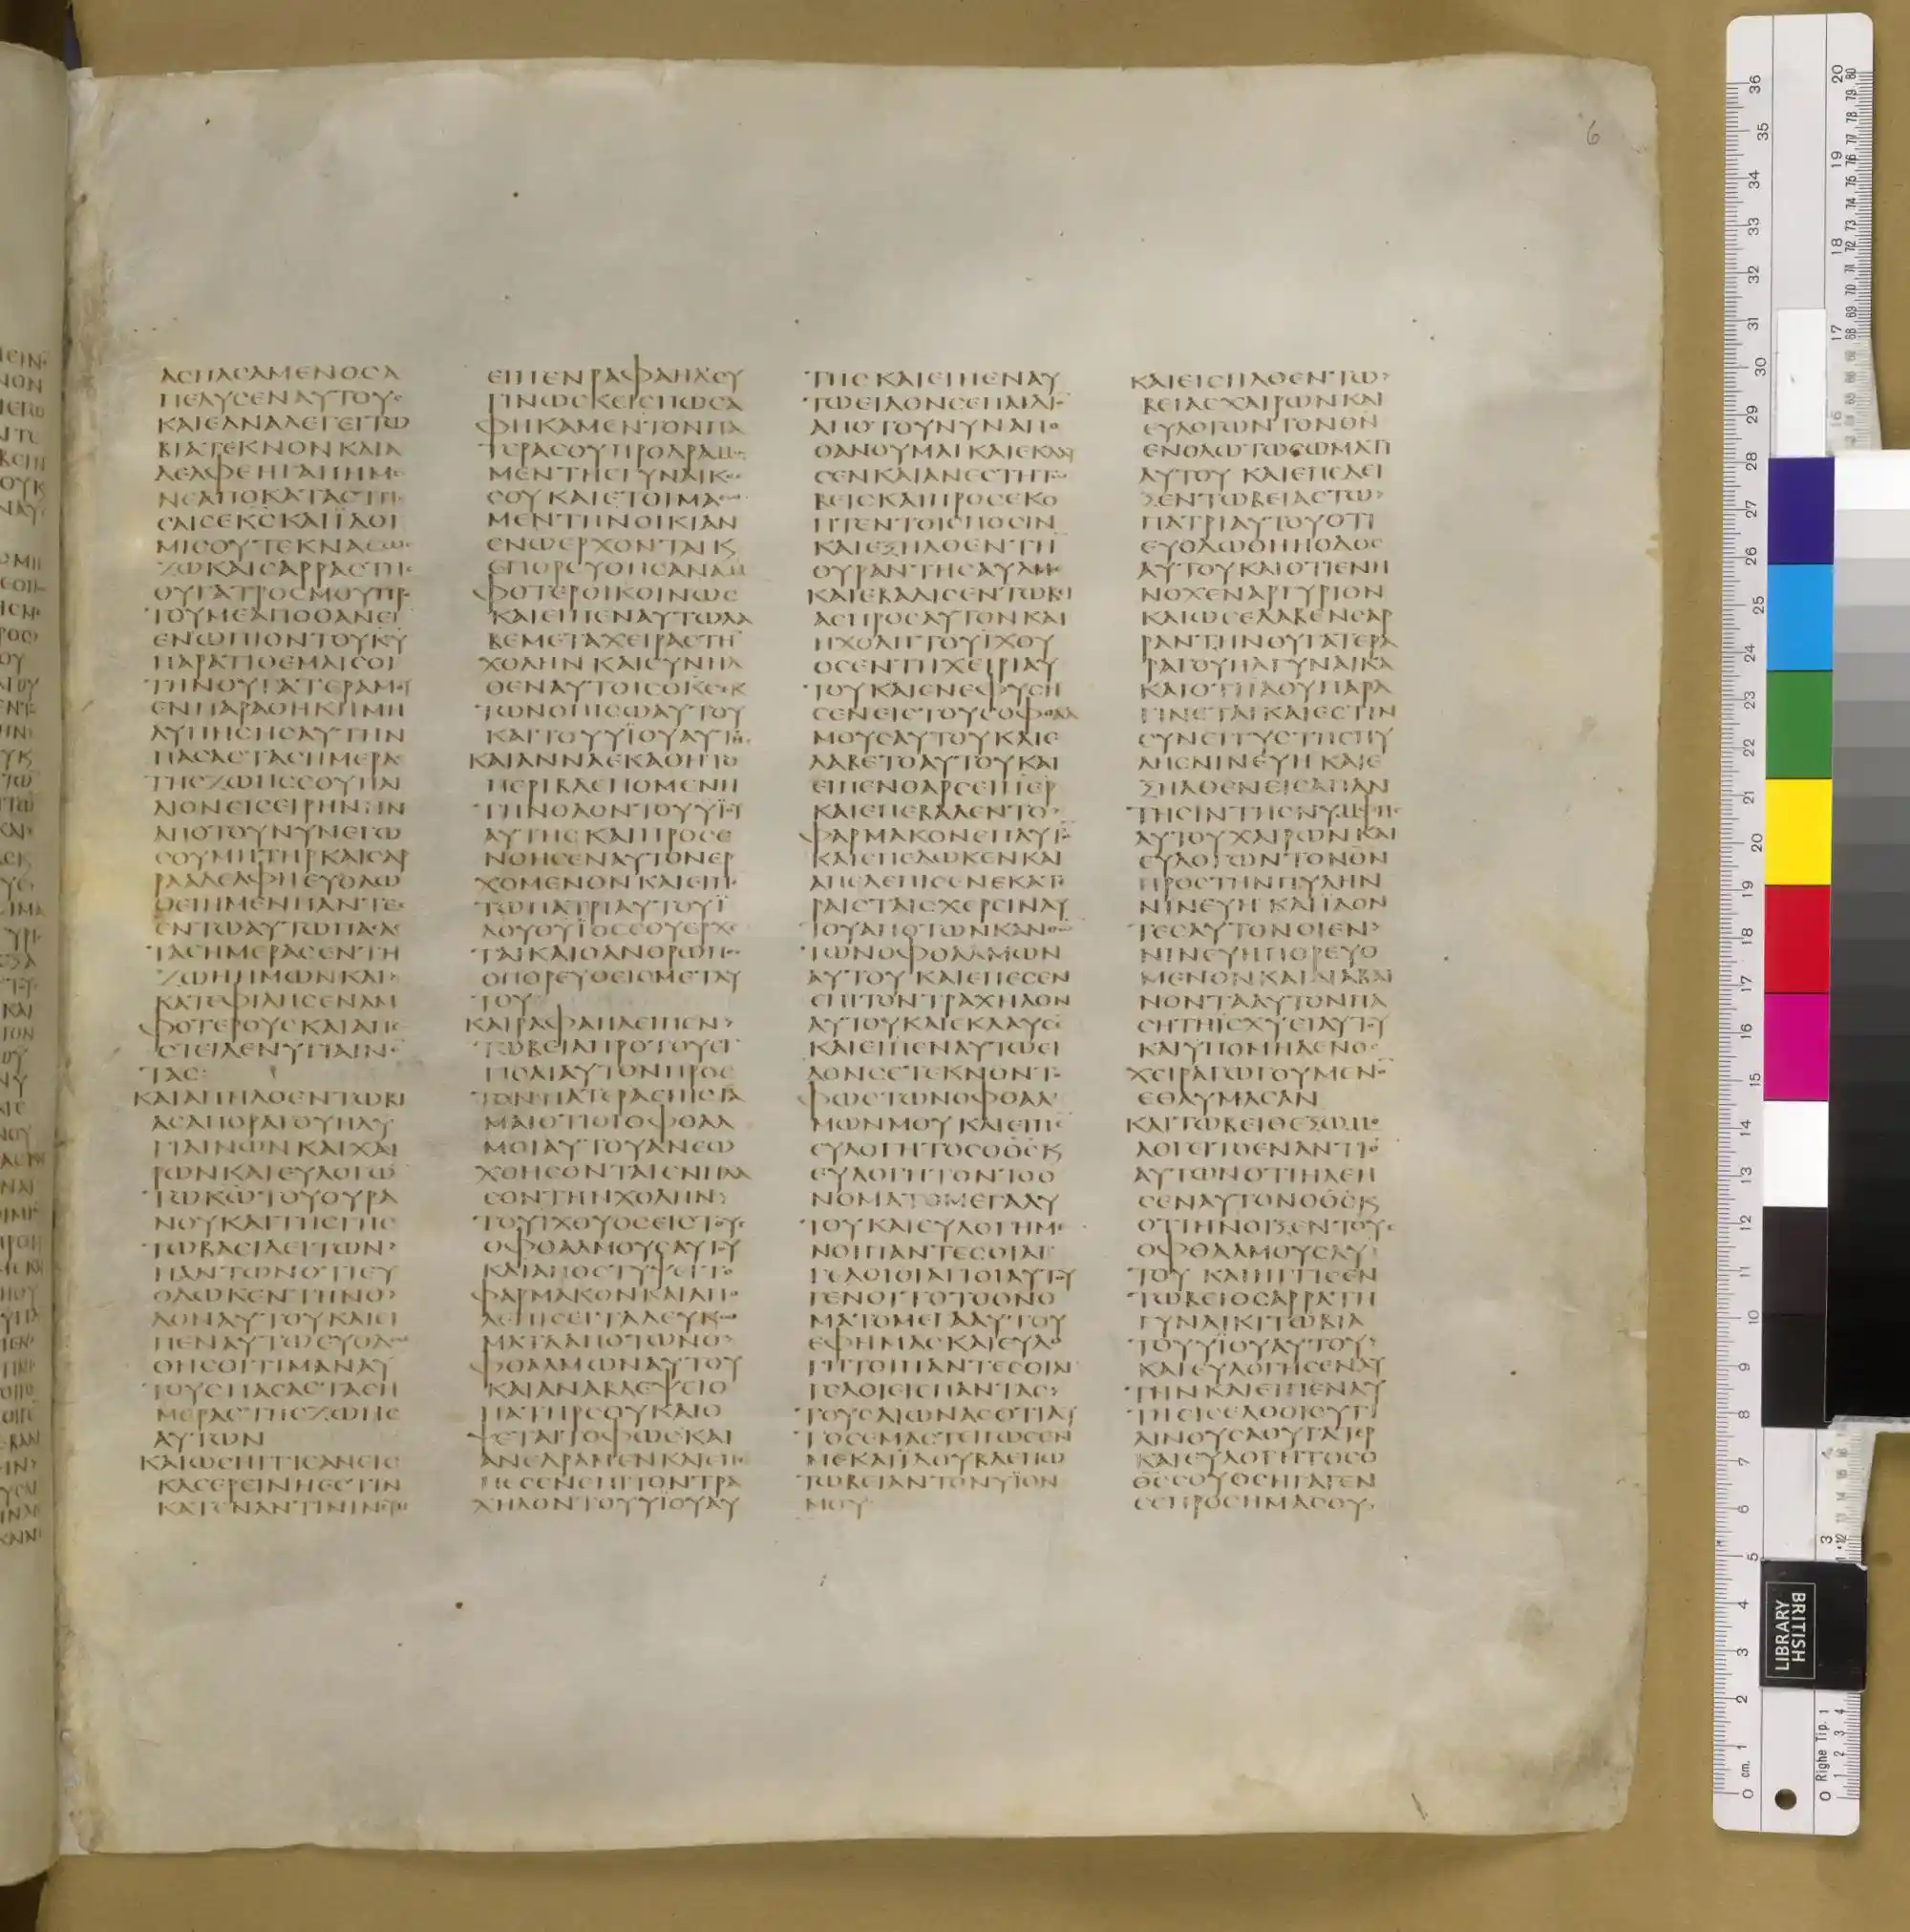 6
ΑϹΠΑϹΑΜΕΝΟϹΑ
ΠΕΛΥϹΕΝΑΥΤΟΥϹ
ΚΑΙΕΔΝΑΛΕΓΕΙΤΩ
ΒΙΑΤΕΚΝΟΝΚΑΙΑ
ΔΕΛΦΕΗΓΑΠΗΜΕ
ΝΕΑΠΟΚΑΤΑϹΤΗ
ϹΑΙϹΕΚϹΚΑΙΪΔΟΙ
ΜΙϹΟΥΤΕΚΝΑΕΩϹ
ΖΩΚΑΙϹΑΡΡΑϹΤΗϹ
ΘΥΓΑΤΡΟϹΜΟΥΠΡΟ
ΤΟΥΜΕΑΠΟΘΑΝΕΙ
ΕΝΩΠΙΟΝΤΟΥΚΥ
ΠΑΡΑΤΙΘΕΜΑΙϹΟΙ
ΤΗΝΘΥΓΑΤΕΡΑΜΟΥ
ΕΝΠΑΡΑΘΗΚΗΜΗ
ΛΥΠΗϹΗϹΑΥΤΗΝ
ΠΑϹΑϹΤΑϹΗΜΕΡΑϹ
ΤΗϹΖΩΗϹϹΟΥΠΑΙ
ΔΙΟΝΕΙϹΕΙΡΗΝΗΝ
ΑΠΟΤΟΥΝΥΝΕΓΩ
ϹΟΥΜΗΤΗΡΚΑΙϹΑΡ
ΡΑΑΔΕΛΦΗΕΥΟΔΩ
ΘΕΙΗΜΕΝΠΑΝΤΕϹ
ΕΝΤΩΑΥΤΩΠΑϹΑϹ
ΤΑϹΗΜΕΡΑϹΕΝΤΗ
ΖΩΗΗΜΩΝΚΑΙ
ΚΑΤΕΦΙΛΗϹΕΝΑΜ
ΦΟΤΕΡΟΥϹΚΑΙΑΠΕ
ϹΤΕΙΛΕΝΥΓΙΑΙΝΟ
ΤΑϹ
ΚΑΙΑΠΗΛΘΕΝΤΩΒΙ
ΑϹΑΠΟΡΑΓΟΥΗΛΥ
ΓΙΑΙΝΩΝΚΑΙΧΑΙ
ΡΩΝΚΑΙΕΥΛΟΓΩ
ΤΩΚΩΤΟΥΟΥΡΑ
ΝΟΥΚΑΙΤΗϹΓΗϹ
ΤΩΒΑϹΙΛΕΙΤΩΝ
ΠΑΝΤΩΝΟΤΙΕΥ
ΟΔΩΚΕΝΤΗΝΟ
ΔΟΝΑΥΤΟΥΚΑΙΕΙ
ΠΕΝΑΥΤΩΕΥΟΔΩ
ΘΗϹΟΙΤΙΜΑΝΑΥ
ΤΟΥϹΠΑϹΑϹΤΑϹΗ
ΜΕΡΑϹΤΗϹΖΩΗϹ
ΑΥΤΩΝ
ΚΑΙΩϹΗΓΓΙϹΑΝΕΙϹ
ΚΑϹΕΡΕΙΝΗΕϹΤΙΝ
ΚΑΤΕΝΑΝΤΙΝΙΝΕΥΗ
ΕΙΠΕΝΡΑΦΑΗΛϹΥ
ΓΙΝΩϹΚΕΙϹΠΩϹΑ
ΦΗΚΑΜΕΝΤΟΝΠΑ
ΤΕΡΑϹΟΥΠΡΟΔΡΑΜΩ
ΜΕΝΤΗϹΓΥΝΑΙΚΟϹ
ϹΟΥΚΑΙΕΤΟΙΜΑϹΩ
ΜΕΝΤΗΝΟΙΚΙΑΝ
ΕΝΩΕΡΧΟΝΤΑΙΚϹ
ΕΠΟΡΕΥΘΗϹΑΝΑΜ
ΦΟΤΕΡΟΙΚΟΙΝΩϹ
ΚΑΙΕΙΠΕΝΑΥΤΩΛΑ
ΒΕΜΕΤΑΧΕΙΡΑϹΤΗ
ΧΟΛΗΝΚΑΙϹΥΝΗΛ
ΘΕΝΑΥΤΟΙϹΟΚϹΕΚ
ΤΩΝΟΠΙϹΩΑΥΤΟΥ
ΚΑΙΤΟΥΥΪΟΥΑΥΤΗϹ
ΚΑΙΑΝΝΑΕΚΑΘΗΤΟ
ΠΕΡΙΒΛΕΠΟΜΕΝΗ
ΤΗΝΟΔΟΝΤΟΥΥΪΟΥ
ΑΥΤΗϹΚΑΙΠΡΟϹΕ
ΝΟΗϹΕΝΑΥΤΟΝΕΡ
ΧΟΜΕΝΟΝΚΑΙΕΙΠΕ
ΤΩΠΑΤΡΙΑΥΤΟΥΪ
ΔΟΥΟΥΪΟϹϹΟΥΕΡΧΕ
ΤΑΙΚΑΙΟΑΝΘΡΩΠΟϹ
ΟΠΟΡΕΥΘΕΙϹΜΕΤΑΥ
ΤΟΥ
ΚΑΙΡΑΦΑΗΛΕΙΠΕΝ
ΤΩΒΕΙΑΠΡΟΤΟΥΕΓ
ΓΙϹΑΙΑΥΤΟΝΠΡΟϹ
ΤΟΝΠΑΤΕΡΑΕΠΙϹΤΑ
ΜΑΙΟΤΙΟΙΟΦΘΑΛ
ΜΟΙΑΥΤΟΥΑΝΕΩ
ΧΘΗϹΟΝΤΑΙΕΝΠΛΑ
ϹΟΝΤΗΝΧΟΛΗΝ
ΤΟΥΙΧΘΥΟϹΕΙϹΤΟΥϹ
ΟΦΘΑΛΜΟΥϹΑΥΤΟΥ
ΚΑΙΑΠΟϹΤΥΨΕΙΤΟ
ΦΑΡΜΑΚΟΝΚΑΙΑΠΟ
ΛΕΠΙϹΕΙΤΑΛΕΥΚΩ
ΜΑΤΑΑΠΟΤΩΝΟ
ΦΘΑΛΜΩΝΑΥΤΟΥ
ΚΑΙΑΝΑΒΛΕΨΕΙΟ
ΠΑΤΗΡϹΟΥΚΑΙΟ
ΨΕΤΑΙΤΟΦΩϹΚΑΙ
ΑΝΕΔΡΑΜΕΝΚΑΙΕΠΕ
ΠΕϹΕΝΕΠΙΤΟΝΤΡΑ
ΧΗΛΟΝΤΟΥΥΪΟΥΑΥ
ΤΗϹΚΑΙΕΙΠΕΝΑΥ
ΤΩΕΙΔΟΝϹΕΠΑΙΔΙ
ΑΠΟΤΟΥΝΥΝΑΠΟ
ΘΑΝΟΥΜΑΙΚΑΙΕΚΛΑΥ
ϹΕΝΚΑΙΑΝΕϹΤΗΤΩ
ΒΕΙϹΚΑΙΠΡΟϹΕΚΟ
ΠΤΕΝΤΟΙϹΠΟϹΙΝ
ΚΑΙΕΞΗΛΘΕΝΤΗ
ΘΥΡΑΝΤΗϹΑΥΛΗϹ
ΚΑΙΕΒΑΔΙϹΕΝΤΩΒΙ
ΑϹΠΡΟϹΑΥΤΟΝΚΑΙ
ΗΧΟΛΗΤΟΥΪΧΘΥ
ΟϹΕΝΤΗΧΕΙΡΙΑΥ
ΤΟΥΚΑΙΕΝΕΦΥϹΗ
ϹΕΝΕΙϹΤΟΥϹΟΦΘΑΛ
ΜΟΥϹΑΥΤΟΥΚΑΙΕ
ΛΑΒΕΤΟΑΥΤΟΥΚΑΙ
ΕΙΠΕΝΘΑΡϹΕΙΠΕΡ
ΚΑΙΕΠΕΒΑΛΕΝΤΟ
ΦΑΡΜΑΚΟΝΕΠΑΥΤΟ
ΚΑΙΕΠΕΔΩΚΕΝΚΑΙ
ΑΠΕΛΕΠΙϹΕΝΕΚΑΤΕ
ΡΑΙϹΤΑΙϹΧΕΡϹΙΝΑΥ
ΤΟΥΑΠΟΤΩΝΚΑΝΘΩ
ΤΩΝΟΦΘΑΛΜΩΝ
ΑΥΤΟΥΚΑΙΕΠΕϹΕΝ
ΕΠΙΤΟΝΤΡΑΧΗΛΟΝ
ΑΥΤΟΥΚΑΙΕΚΛΑΥϹΕ
ΚΑΙΕΙΠΕΝΑΥΤΩΕΙ
ΔΟΝϹΕΤΕΚΝΟΝΤΟ
ΦΩϹΤΩΝΟΦΘΑΛ
ΜΩΝΜΟΥΚΑΙΕΙΠΕ
ΕΥΛΟΓΗΤΟϹΟΘϹΚϹ
ΕΥΛΟΓΗΤΟΝΤΟΟ
ΝΟΜΑΤΟΜΕΓΑΑΥ
ΤΟΥΚΑΙΕΥΛΟΓΗΜΕ
ΝΟΙΠΑΝΤΕϹΟΙΑΓ
ΓΕΛΟΙΟΙΑΓΙΟΙΑΥΤΟΥ
ΓΕΝΟΙΤΟΤΟΟΝΟ
ΜΑΤΟΜΕΓΑΑΥΤΟΥ
ΕΦΗΜΑϹΚΑΙΕΥΛΟ
ΓΗΤΟΙΠΑΝΤΕϹΟΙΑΓ
ΓΕΛΟΙΕΙϹΠΑΝΤΑϹ
ΤΟΥϹΑΙΩΝΑϹΟΤΙΑΥ
ΤΟϹΕΜΑϹΤΕΙΓΩϹΕΝ
ΜΕΚΑΙΪΔΟΥΒΛΕΠΩ
ΤΩΒΕΙΑΝΤΟΝΥΪΟΝ
ΜΟΥ
ΚΑΙΕΙϹΗΛΘΕΝΤΩ
ΒΕΙΑϹΧΑΙΡΩΝΚΑΙ
ΕΥΛΟΓΩΝΤΟΝΘΝ
ΕΝΟΛΩΤΩϹΩΜΑΤΙ
ΑΥΤΟΥΚΑΙΕΠΕΔΕΙ
ΞΕΝΤΩΒΕΙΑϹΤΩ
ΠΑΤΡΙΑΥΤΟΥΟΤΙ
ΕΥΟΔΩΘΗΗΟΔΟϹ
ΑΥΤΟΥΚΑΙΟΤΙΕΝΗ
ΝΟΧΕΝΑΡΓΥΡΙΟΝ
ΚΑΙΩϹΕΛΑΒΕΝϹΑΡ
ΡΑΝΤΗΝΘΥΓΑΤΕΡΑ
ΡΑΓΟΥΗΛΓΥΝΑΙΚΑ
ΚΑΙΟΤΙΪΔΟΥΠΑΡΑ
ΓΙΝΕΤΑΙΚΑΙΕϹΤΙΝ
ϹΥΝΕΓΓΥϹΤΗϹΠΥ
ΛΗϹΝΙΝΕΥΗΚΑΙΕ
ΞΗΛΘΕΝΕΙϹΑΠΑΝ
ΤΗϹΙΝΤΗϹΝΥΜΦΗϹ
ΑΥΤΟΥΧΑΙΡΩΝΚΑΙ
ΕΥΛΟΓΩΝΤΟΝΘΝ
ΠΡΟϹΤΗΝΠΥΛΗΝ
ΝΙΝΕΥΗΚΑΙΪΔΟΝ
ΤΕϹΑΥΤΟΝΟΙΕΝ
ΝΙΝΕΥΗΠΟΡΕΥΟ
ΜΕΝΟΝΚΑΙΔΙΑΒΑΙ
ΝΟΝΤΑΑΥΤΟΝΠΑ
ϹΗΤΗΪϹΧΥΕΙΑΥΤΟΥ
ΚΑΙΥΠΟΜΗΔΕΝΟϹ
ΧΕΙΡΑΓΩΓΟΥΜΕΝΟ
ΕΘΑΥΜΑϹΑΝ
ΚΑΙΤΩΒΕΙΘΕΞΩΜΟ
ΛΟΓΕΙΤΟΕΝΑΝΤΙΟ
ΑΥΤΩΝΟΤΙΗΛΕΗ
ϹΕΝΑΥΤΟΝΟΘϹΚϹ
ΟΤΙΗΝΟΙΞΕΝΤΟΥϹ
ΟΦΘΑΛΜΟΥϹΑΥ
ΤΟΥΚΑΙΗΓΓΙϹΕΝ
ΤΩΒΕΙΘϹΑΡΡΑΤΗ
ΓΥΝΑΙΚΙΤΩΒΙΑ
ΤΟΥΥΪΟΥΑΥΤΟΥ
ΚΑΙΕΥΛΟΓΗϹΕΝΑΥ
ΤΗΝΚΑΙΕΙΠΕΝΑΥ
ΤΗΕΙϹΕΛΘΟΙϹΥΓΙ
ΑΙΝΟΥϹΑΘΥΓΑΤΕΡ
ΚΑΙΕΥΛΟΓΗΤΟϹΟ
ΘϹϹΟΥΟϹΗΓΑΓΕΝ
ϹΕΠΡΟϹΗΜΑϹΟΥ
BRITISH
LIBRARY